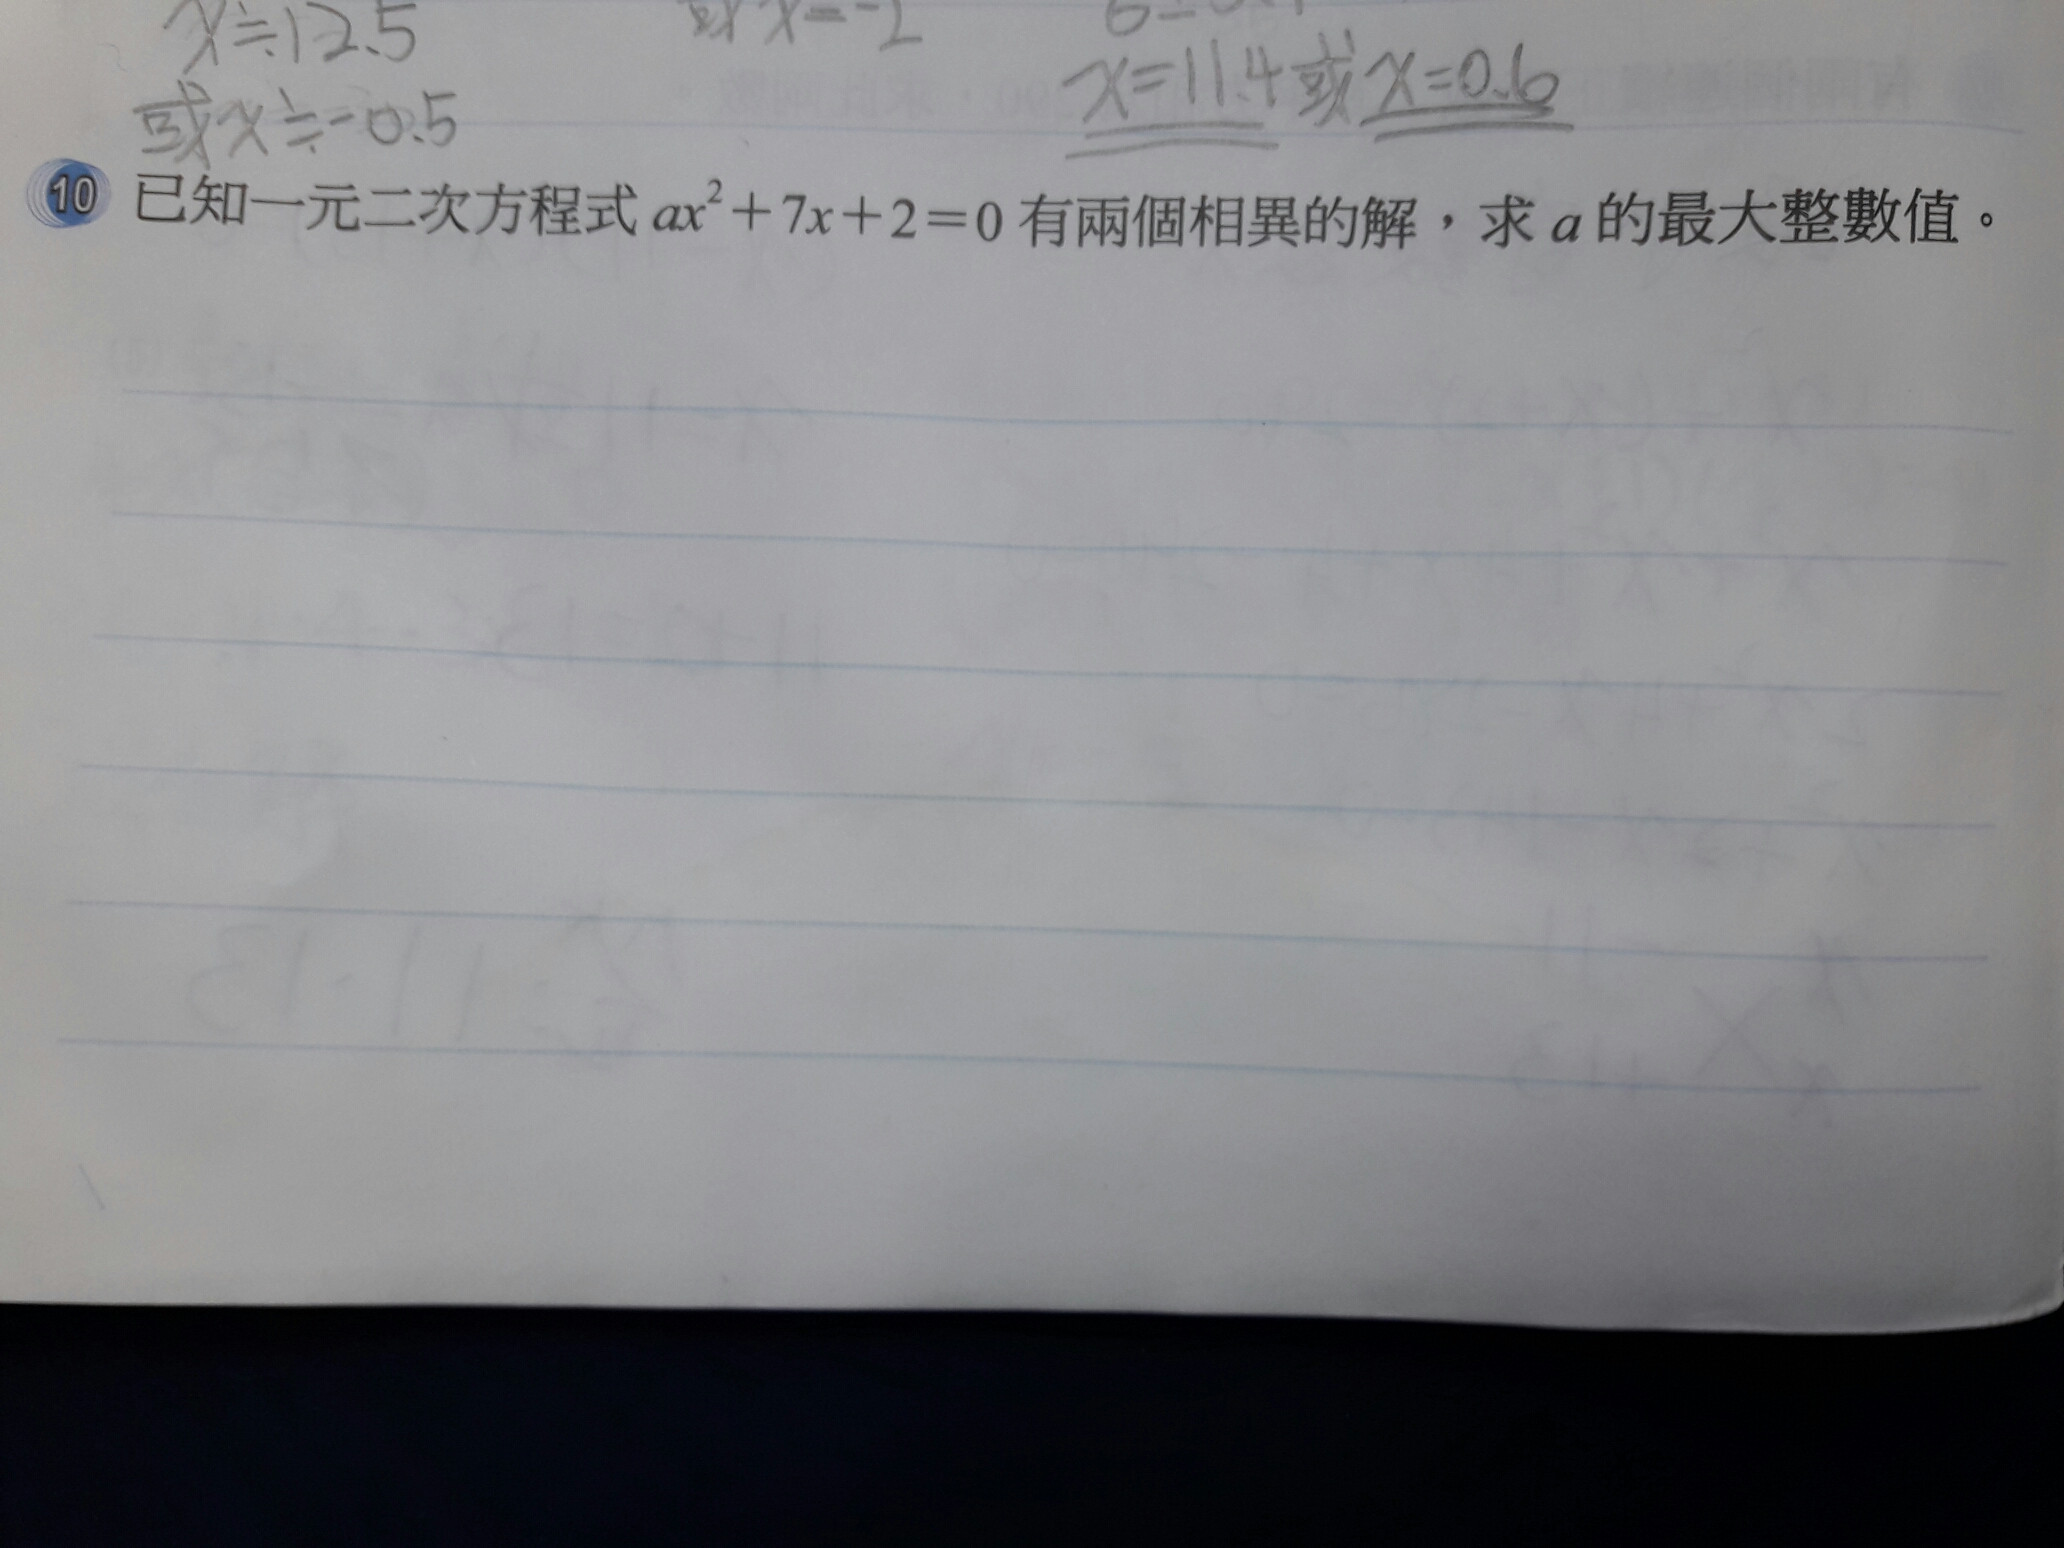 x≒12.5
或x=-2
x=11.4或x=0.6
或x≒-0.5
10 已知一元二次方程式 ax²+7x+2=0 有兩個相異的解，求 a 的最大整數值。